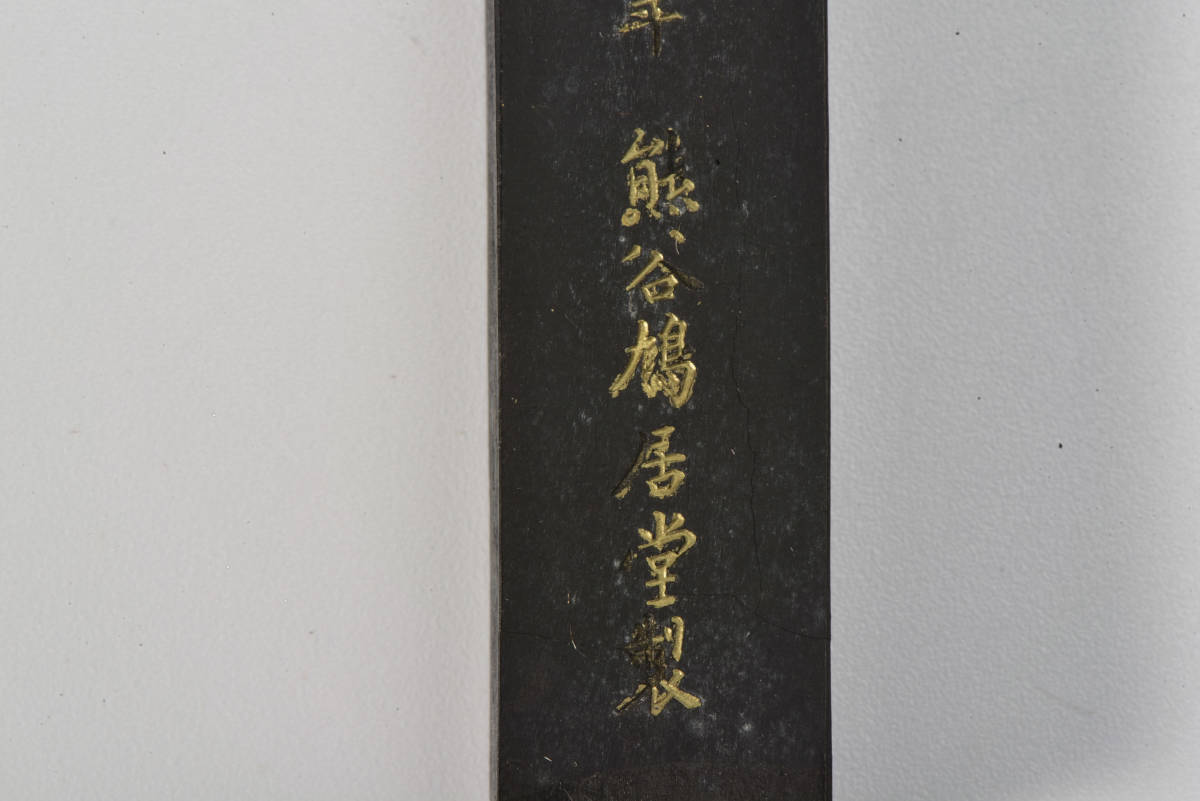 年 熊谷鳩居堂製